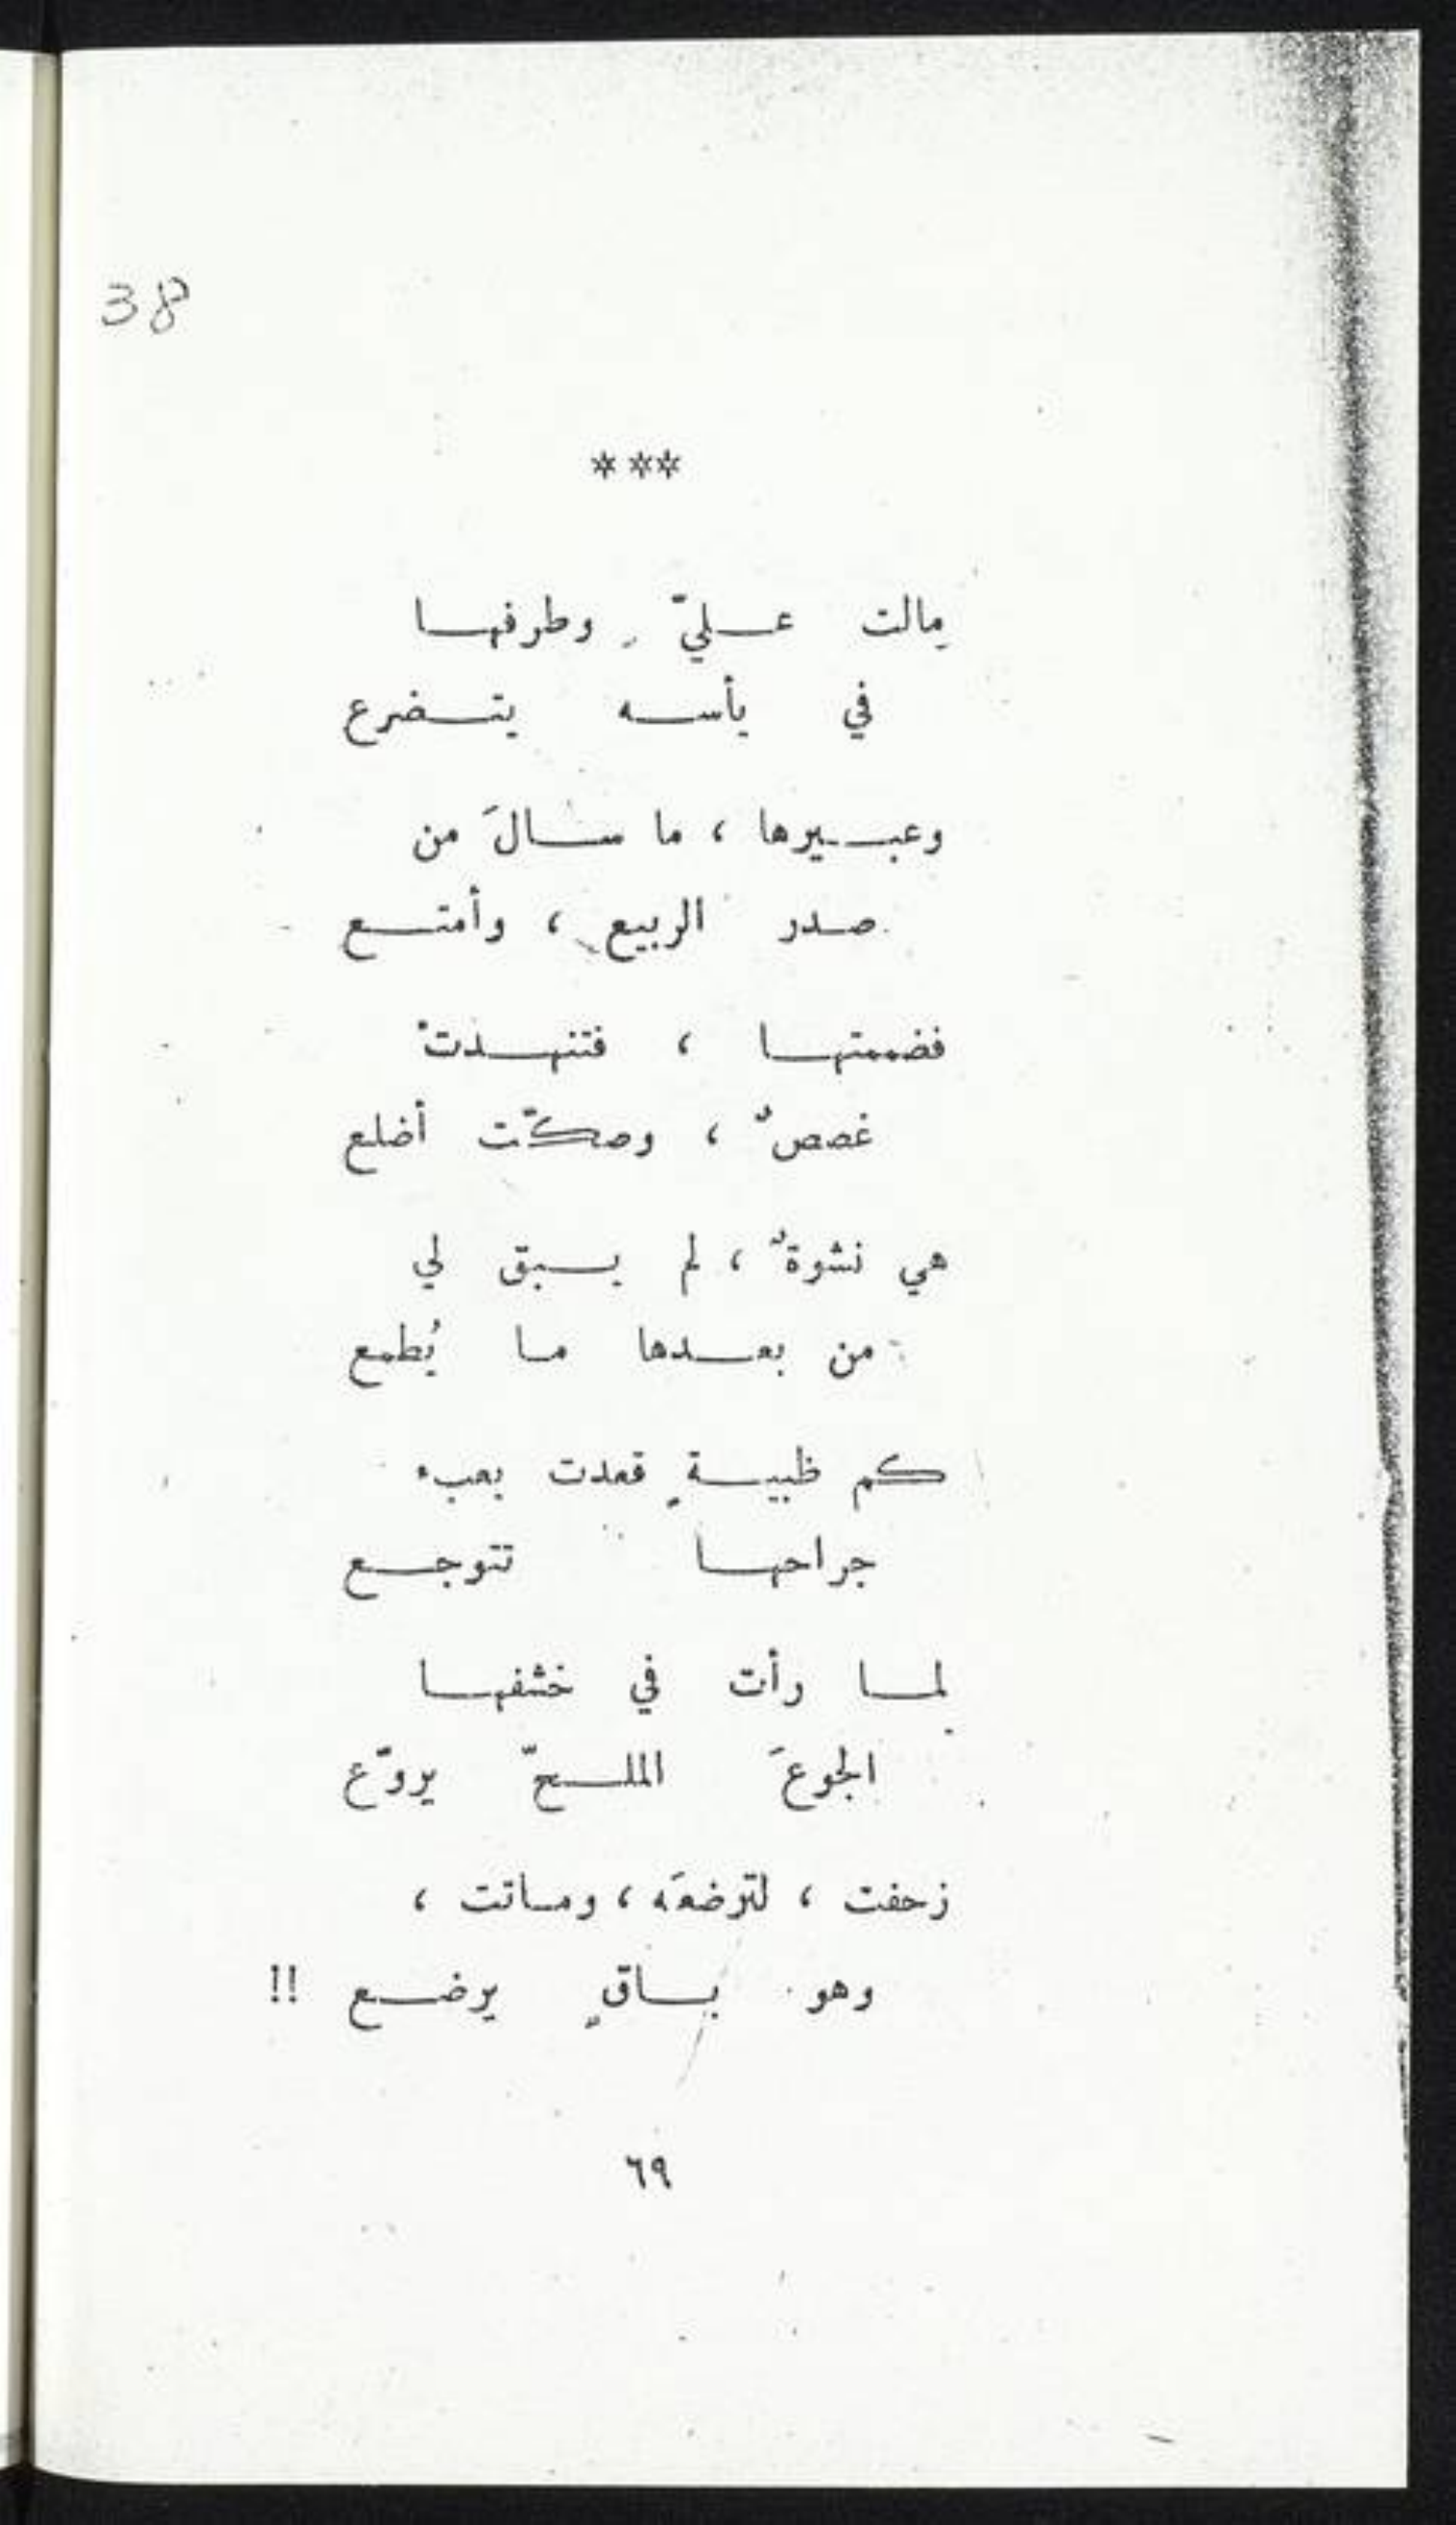 38
***
مالت عليّ وطرفها
في يأسه يتضرع
وعبيرها ، ما سالَ من
صدر الربيع ، وأمتع
فضممتها ، فتنهدتْ
غصصٌ ، وصكّت أضلع
هي نشوةٌ ، لم يبق لي
من بعدها ما يُطمع
كم ظبيةٍ قعدت بعبء
جراحها تتوجع
لما رأت في خشفها
الجوعَ الملحّ يروّع
زحفت ، لترضعَه ، وماتت ،
وهو باقٍ يرضع !!
٦٩